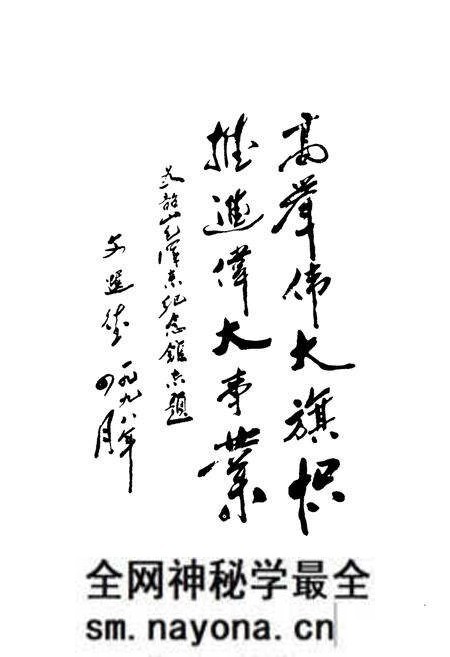 高舉伟大旗帜
推進偉大事業
为韶山毛澤東纪念館志題
文選德
一九九八年
四月
全网神秘学最全
sm.nayona.cn